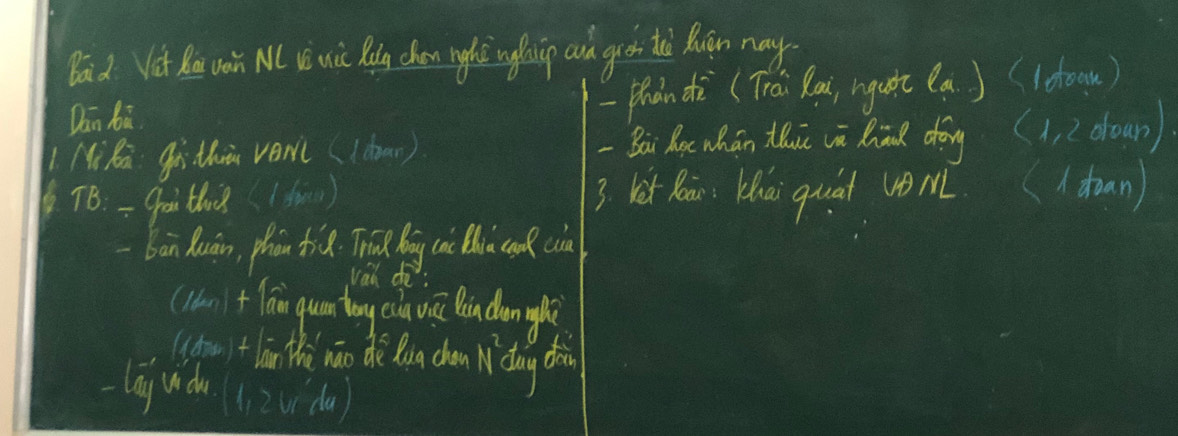 Bài 2: Viết bài văn NL về việc lựa chọn nghề nghiệp của giới trẻ hiện nay.
Dàn bài.
1. Mở bài: giới thiệu VĐNL (1 đoạn)
TB: - Giải thích (1 đoạn)
- Bàn luận, phân tích. Trình bày các khía cạnh của
vấn đề:
(1 đoạn) + Tầm quan trọng của việc lựa chọn nghề
(1 đoạn) + Làm thế nào để lựa chọn N² đúng đắn
- Lấy ví dụ. (1, 2 ví dụ)
- Phản đề (Trái lại, ngược lại...) (1 đoạn)
- Bài học nhận thức và hành động (1, 2 đoạn).
3. Kết bài: Khái quát VĐNL. (1 đoạn)